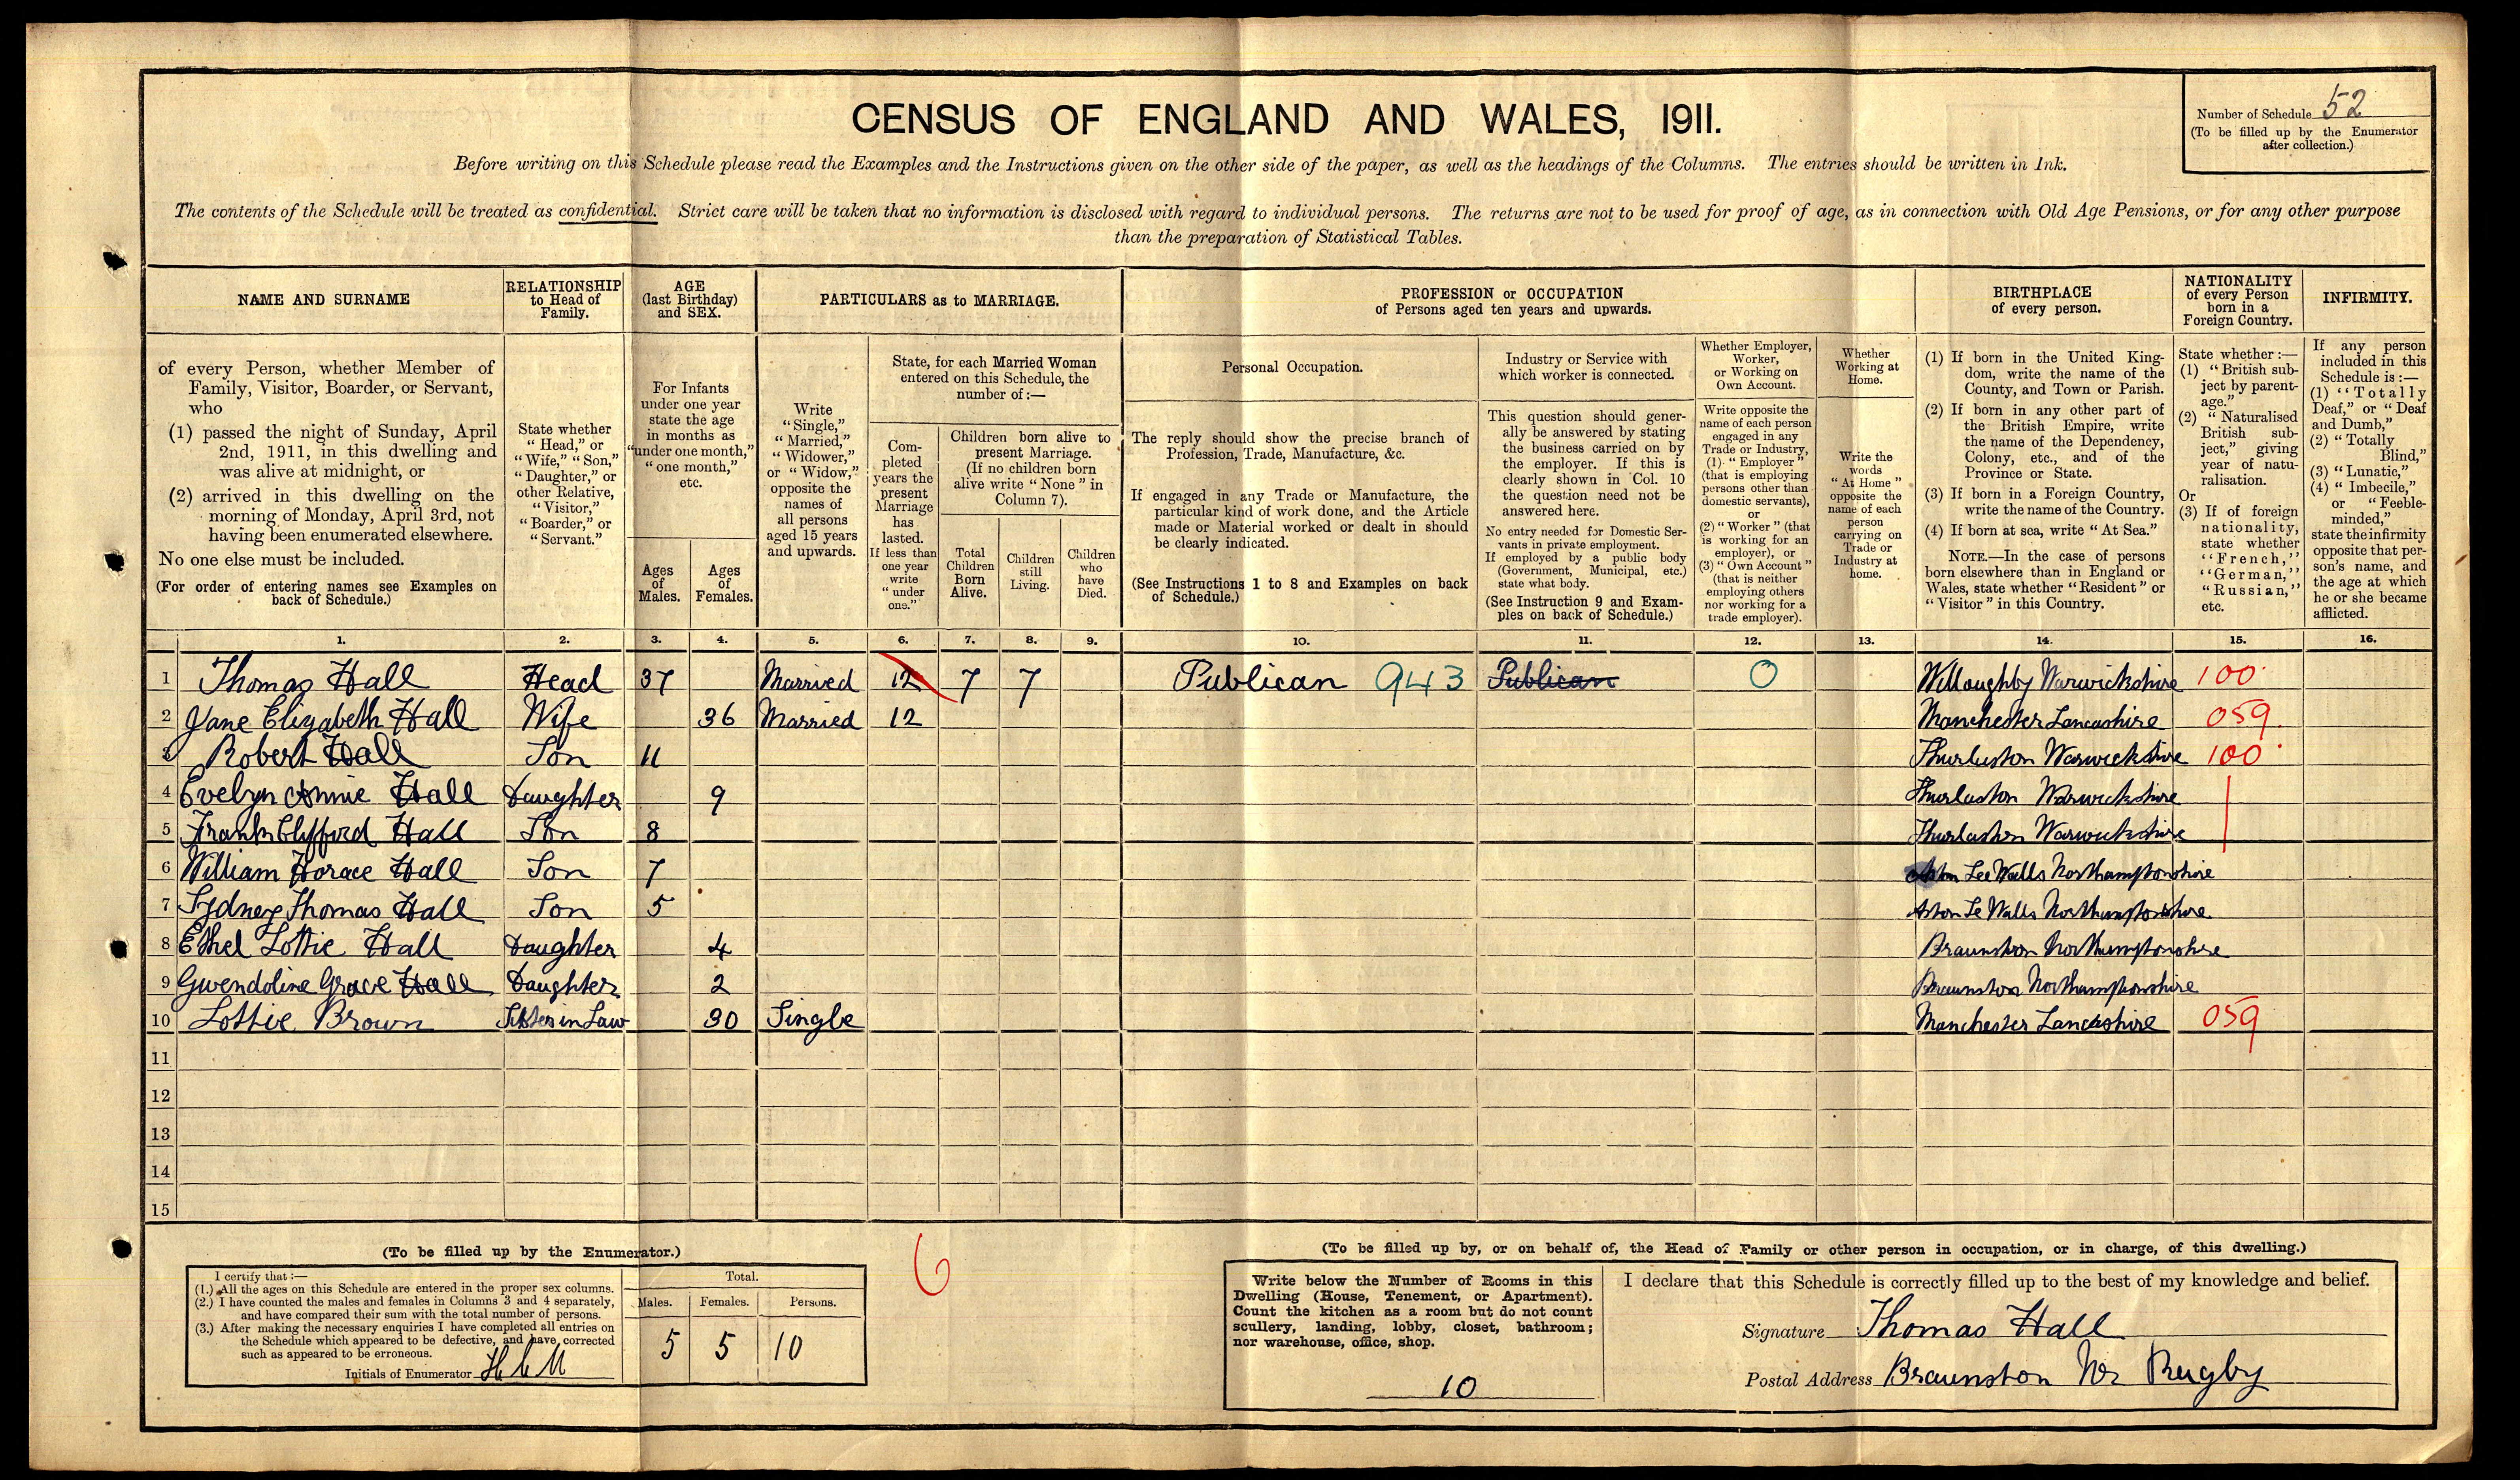 CENSUS OF ENGLAND AND WALES, 1911.
Number of Schedule 52
(To be filled up by the Enumerator
after collection.)
Before writing on this Schedule please read the Examples and the Instructions given on the other side of the paper, as well as the headings of the Columns. The entries should be written in Ink.
The contents of the Schedule will be treated as confidential. Strict care will be taken that no information is disclosed with regard to individual persons. The returns are not to be used for proof of age, as in connection with Old Age Pensions, or for any other purpose
than the preparation of Statistical Tables.
NAME AND SURNAME
of every Person, whether Member of
Family, Visitor, Boarder, or Servant,
who
(1) passed the night of Sunday, April
2nd, 1911, in this dwelling and
was alive at midnight, or
(2) arrived in this dwelling on the
morning of Monday, April 3rd, not
having been enumerated elsewhere.
No one else must be included.
(For order of entering names see Examples on
back of Schedule.)
RELATIONSHIP
to Head of
Family.
State whether
"Head," or
"Wife," "Son,"
"Daughter," or
other Relative,
"Visitor,"
"Boarder," or
"Servant."
AGE
(last Birthday)
and SEX.
For Infants
under one year
state the age
in months as
"under one month,"
"one month,"
etc.
Ages
of
Males.
Ages
of
Females.
PARTICULARS as to MARRIAGE.
Write
"Single,"
"Married,"
"Widower,"
or "Widow,"
opposite the
names of
all persons
aged 15 years
and upwards.
State, for each Married Woman
entered on this Schedule, the
number of :—
Com-
pleted
years the
present
Marriage
has
lasted.
If less than
one year
write
"under
one."
Children born alive to
present Marriage.
(If no children born
alive write "None" in
Column 7).
Total
Children
Born
Alive.
Children
still
Living.
Children
who
have
Died.
PROFESSION or OCCUPATION
of Persons aged ten years and upwards.
Personal Occupation.
The reply should show the precise branch of
Profession, Trade, Manufacture, &c.
If engaged in any Trade or Manufacture, the
particular kind of work done, and the Article
made or Material worked or dealt in should
be clearly indicated.
(See Instructions 1 to 8 and Examples on back
of Schedule.)
Industry or Service with
which worker is connected.
This question should gener-
ally be answered by stating
the business carried on by
the employer. If this is
clearly shown in Col. 10
the question need not be
answered here.
No entry needed for Domestic Ser-
vants in private employment.
If employed by a public body
(Government, Municipal, etc.)
state what body.
(See Instruction 9 and Exam-
ples on back of Schedule.)
Whether Employer,
Worker,
or Working on
Own Account.
Write opposite the
name of each person
engaged in any
Trade or Industry,
(1) "Employer"
(that is employing
persons other than
domestic servants),
or
(2) "Worker" (that
is working for an
employer), or
(3) "Own Account"
(that is neither
employing others
nor working for a
trade employer).
Whether
Working at
Home.
Write the
words
"At Home"
opposite the
name of each
person
carrying on
Trade or
Industry at
home.
BIRTHPLACE
of every person.
(1) If born in the United King-
dom, write the name of the
County, and Town or Parish.
(2) If born in any other part of
the British Empire, write
the name of the Dependency,
Colony, etc., and of the
Province or State.
(3) If born in a Foreign Country,
write the name of the Country.
(4) If born at sea, write "At Sea."
NOTE.—In the case of persons
born elsewhere than in England or
Wales, state whether "Resident" or
"Visitor" in this Country.
NATIONALITY
of every Person
born in a
Foreign Country.
State whether :—
(1) "British sub-
ject by parent-
age."
(2) "Naturalised
British sub-
ject," giving
year of natu-
ralisation.
Or
(3) If of foreign
nationality,
state whether
"French,"
"German,"
"Russian,"
etc.
INFIRMITY.
If any person
included in this
Schedule is :—
(1) "Totally
Deaf," or "Deaf
and Dumb,"
(2) "Totally
Blind,"
(3) "Lunatic,"
(4) "Imbecile,"
or "Feeble-
minded,"
state the infirmity
opposite that per-
son's name, and
the age at which
he or she became
afflicted.
1. 2. 3. 4. 5. 6. 7. 8. 9. 10. 11. 12. 13. 14. 15. 16.
1 Thomas Hall Head 37 Married 12 7 7 Publican 943 Publican 0 Willoughby Warwickshire 100
2 Jane Elizabeth Hall Wife 36 Married 12 Manchester Lancashire 059
3 Robert Hall Son 11 Thurlaston Warwickshire 100
4 Evelyn Annie Hall Daughter 9 Thurlaston Warwickshire
5 Frank Clifford Hall Son 8 Thurlaston Warwickshire
6 William Horace Hall Son 7 Aston Lee Walls Northamptonshire
7 Sydney Thomas Hall Son 5 Aston Le Walls Northamptonshire
8 Ethel Lottie Hall Daughter 4 Braunston Northamptonshire
9 Gwendoline Grace Hall Daughter 2 Braunston Northamptonshire
10 Lottie Brown Sister in Law 30 Single Manchester Lancashire 059
11
12
13
14
15
(To be filled up by the Enumerator.)
I certify that :—
(1.) All the ages on this Schedule are entered in the proper sex columns.
(2.) I have counted the males and females in Columns 3 and 4 separately,
and have compared their sum with the total number of persons.
(3.) After making the necessary enquiries I have completed all entries on
the Schedule which appeared to be defective, and have corrected
such as appeared to be erroneous.
Initials of Enumerator
Total.
Males. Females. Persons.
5 5 10
6
(To be filled up by, or on behalf of, the Head of Family or other person in occupation, or in charge, of this dwelling.)
Write below the Number of Rooms in this
Dwelling (House, Tenement, or Apartment).
Count the kitchen as a room but do not count
scullery, landing, lobby, closet, bathroom;
nor warehouse, office, shop.
10
I declare that this Schedule is correctly filled up to the best of my knowledge and belief.
Signature Thomas Hall
Postal Address Braunston Nr Rugby